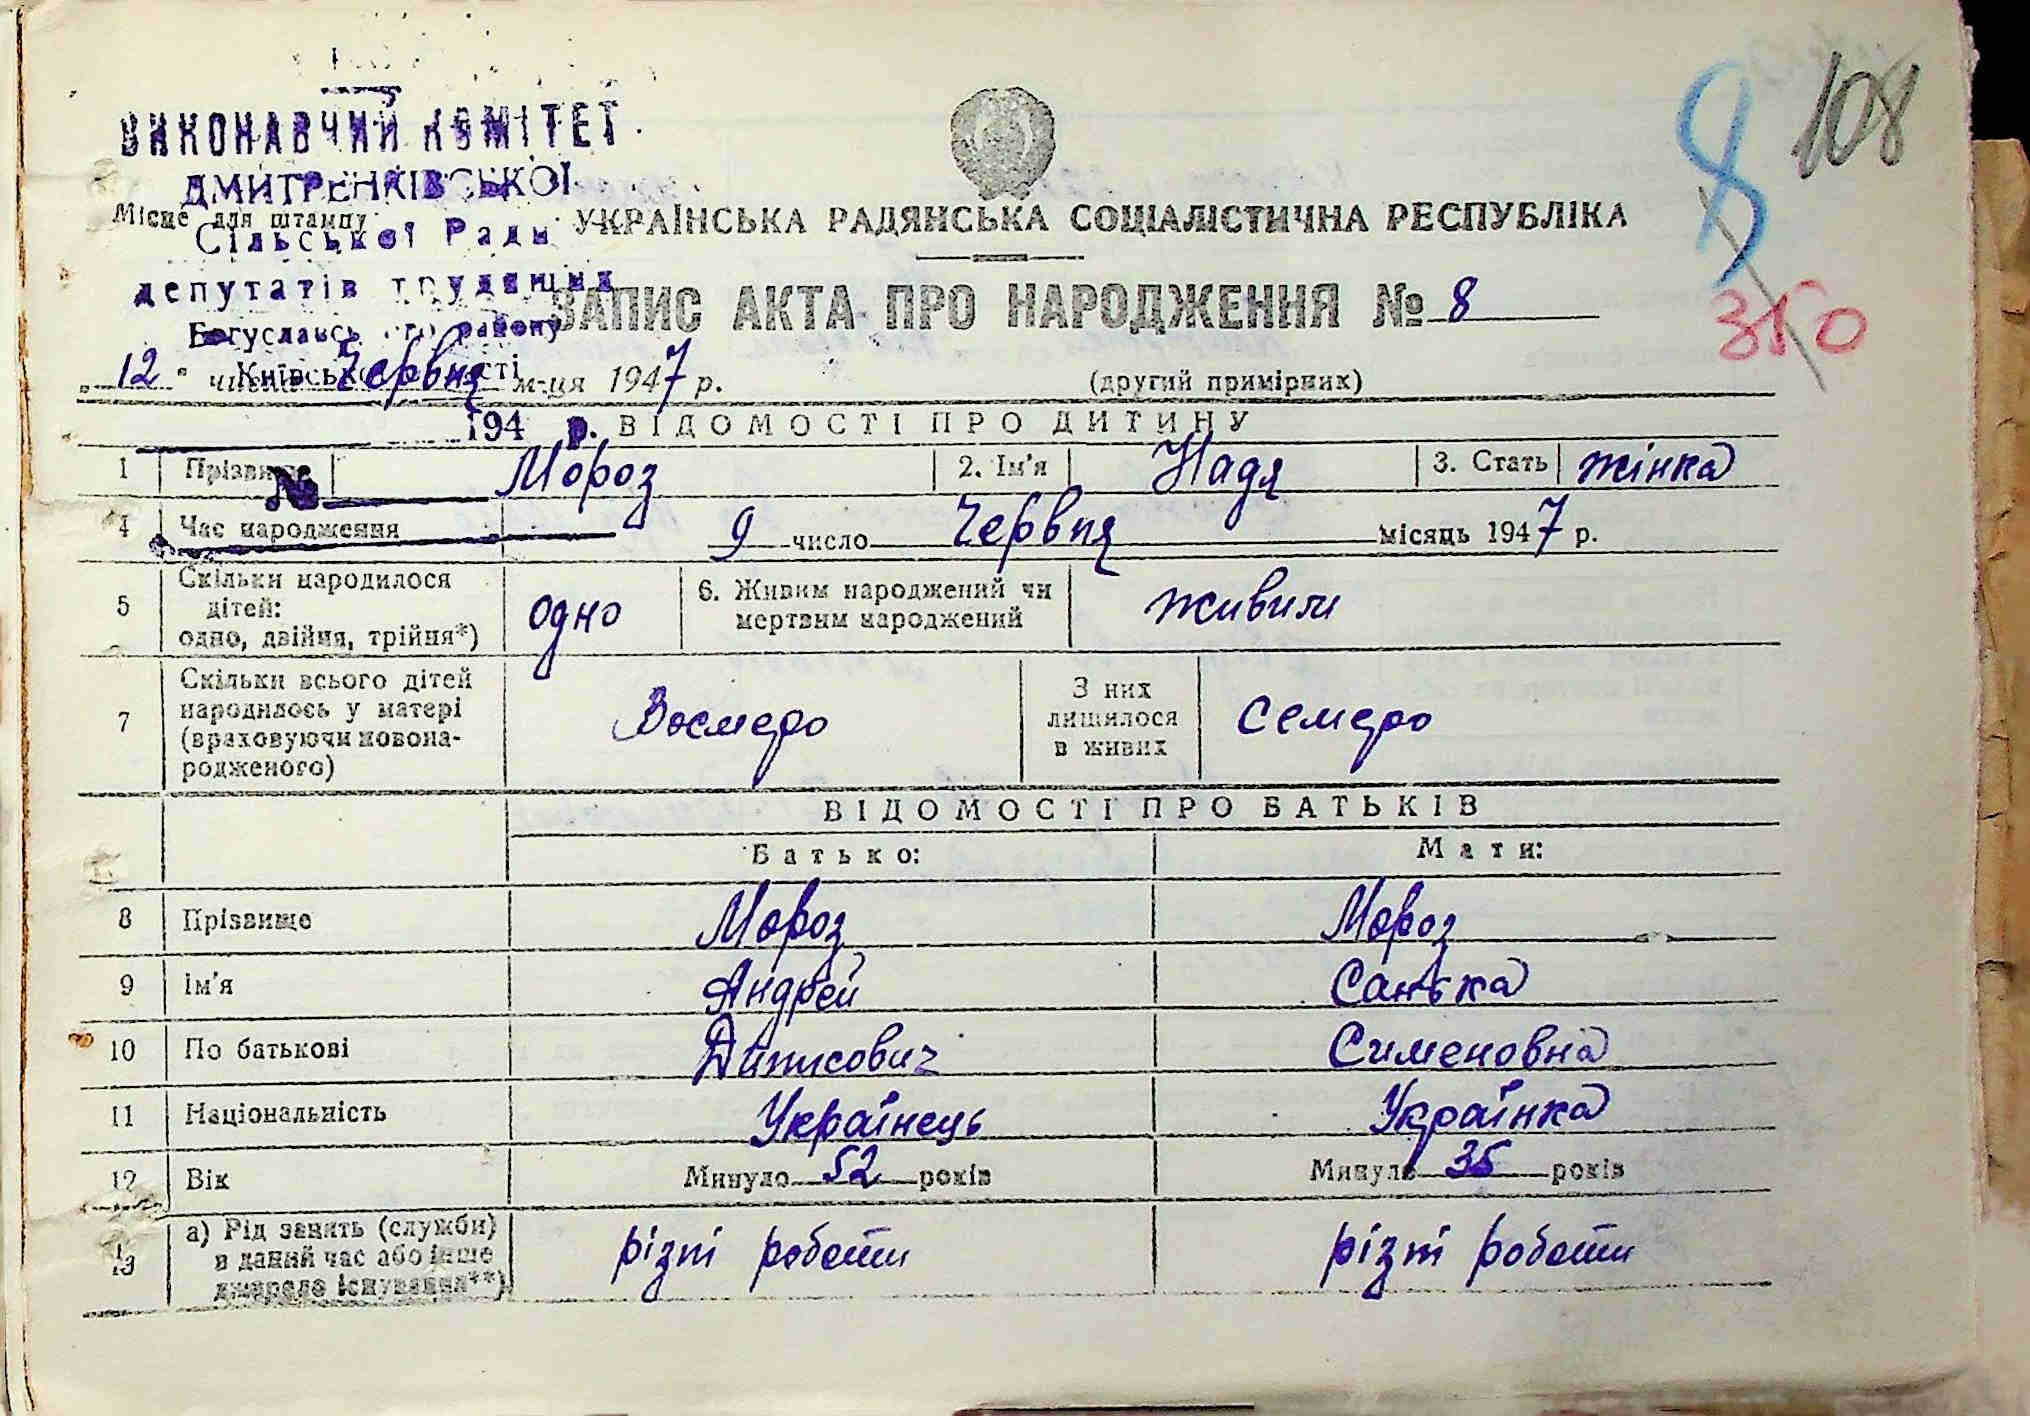 8
108
ВИКОНАВЧИЙ КОМІТЕТ
ДМИТРЕНКІВСЬКОЇ
Місце для штампу
Сільської Ради
депутатів трудящих
Богуславсь ого району
Київської області
194 р.
№
УКРАЇНСЬКА РАДЯНСЬКА СОЦІАЛІСТИЧНА РЕСПУБЛІКА
ЗАПИС АКТА ПРО НАРОДЖЕННЯ № 8
350
„12“ числа Червня м-ця 1947 р.
(другий примірник)
ВІДОМОСТІ ПРО ДИТИНУ
1 Прізвище Мороз 2. Ім'я Надя 3. Стать жінка
4 Час народження 9 число Червня місяць 1947 р.
5 Скільки народилося дітей: одно, двійня, трійня*) одно 6. Живим народжений чи мертвим народжений живим
7 Скільки всього дітей народилось у матері (враховуючи новонародженого) Восмеро З них лишилося в живих семеро
ВІДОМОСТІ ПРО БАТЬКІВ
Батько: Мати:
8 Прізвище Мороз Мороз
9 Ім'я Андрей Санька
10 По батькові Динисович Сименовна
11 Національність Українець Українка
12 Вік Минуло 52 років Минуло 35 років
13 а) Рід занять (служби) в даний час або інше джерело існування**) різні роботи різні роботи